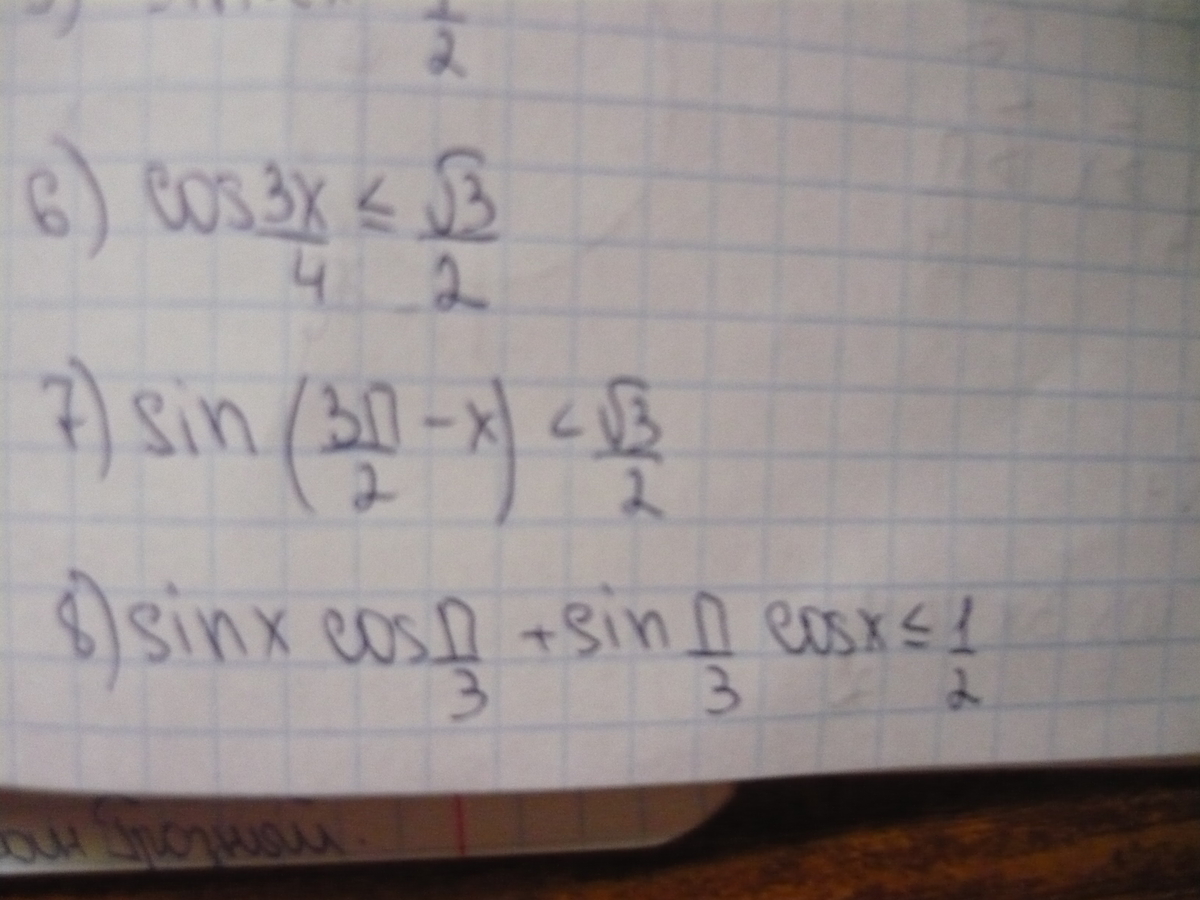 1/2
6) cos 3x/4 ≤ √3/2
7) sin (3π/2 - x) < √3/2
8) sin x cos π/3 + sin π/3 cos x ≤ 1/2